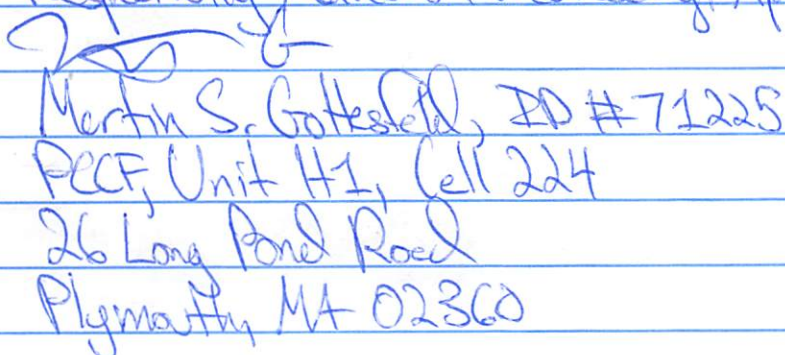 Martin S. Gottesfeld, ID #71225
PCCF, Unit H1, Cell 224
26 Long Pond Road
Plymouth, MA 02360